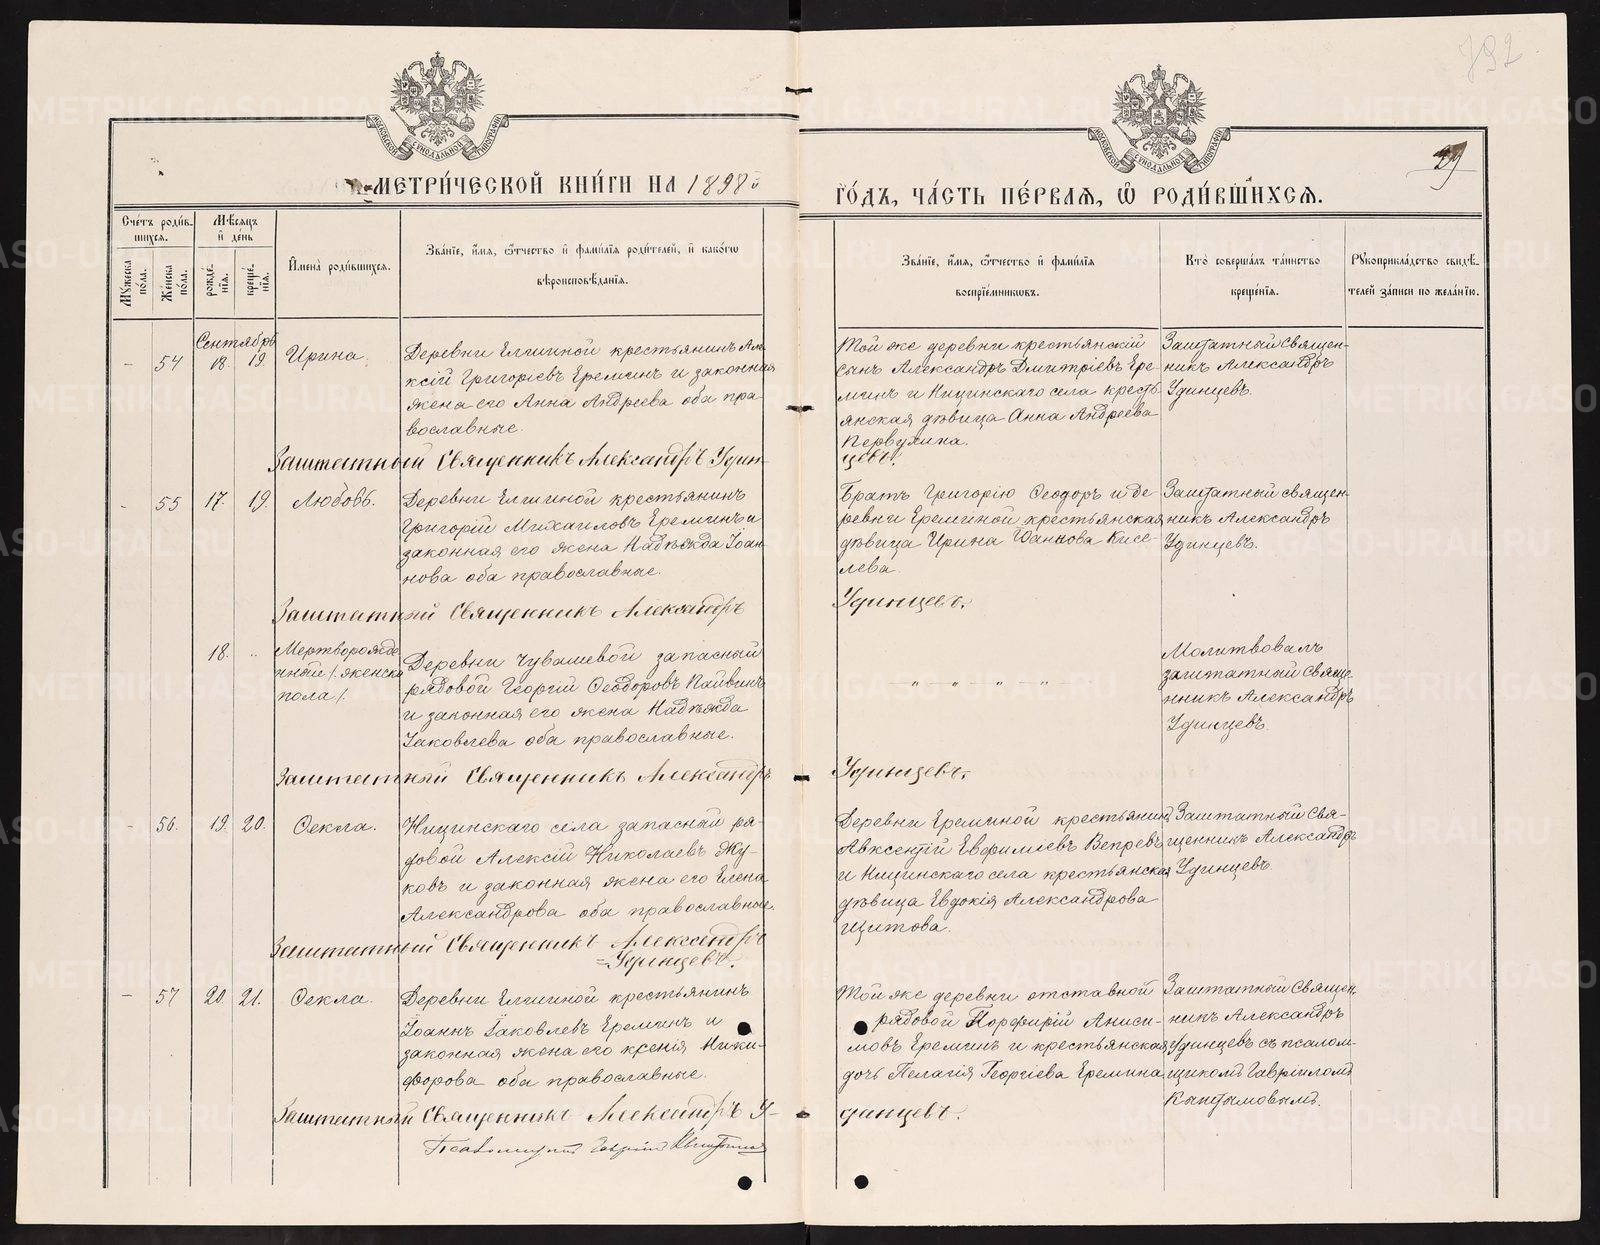 792
29
МОСКОВСКОЙ СѴНОДАЛЬНОЙ ТИПОГРАФІИ
МОСКОВСКОЙ СѴНОДАЛЬНОЙ ТИПОГРАФІИ
МЕТРИ́ЧЕСКОЙ КНИ́ГИ НА 1898й
ГО́ДЪ, ЧА́СТЬ ПЕ́РВАЯ, Ѽ РОДИ́ВШИХСЯ.
Сче́тъ роди́в-
шихся.
Мѣ́сяцъ
и҆ де́нь
Мꙋ́жеска по́ла.
Же́нска по́ла.
рожде́-
нїя.
креще́-
нїя.
И҆мена̀ роди́вшихся.
Зва́нїе, и҆́мя, ѻ҆́тчество и҆ фами́лїя роди́телей, и҆ како́гѡ
вѣроисповѣ́данїя.
Зва́нїе, и҆́мя, ѻ҆́тчество и҆ фами́лїя
воспрїе́мникѡвъ.
Кто̀ соверша́лъ та́инство
креще́нїя.
Рꙋкоприкла́дство свидѣ́-
телей за́писи по жела́нїю.
Сентябрь
– 54 18. 19. Ирина.
Деревни Елшиной крестьянинъ Але-
ксій Григоріевъ Ереминъ и законная
жена его Анна Андреева оба пра-
вославные.
Той же деревни крестьянскій
сынъ Александръ Дмитріевъ Ере-
минъ и Ницинскаго села кресть-
янская дѣвица Анна Андреева
Первухина.
Заштатный Священ-
никъ Александръ
Удинцевъ.
Заштатный Священникъ Александръ Удин-
цевъ.
– 55 17. 19. Любовь.
Деревни Елшиной крестьянинъ
Григорій Михаиловъ Ереминъ и
законная его жена Надѣжда Іоан-
нова оба православные.
Братъ Григорію Ѳеодоръ и де-
ревни Ереминой крестьянская
дѣвица Ирина Іоаннова Кисе-
лева.
Заштатный священ-
никъ Александръ
Удинцевъ.
Заштатный Священникъ Александръ
Удинцевъ.
18. „ Мертворожде-
нный /женска
пола/.
Деревни Чувашевой запасный
рядовой Георгій Ѳеодоровъ Пайвинъ
и законная его жена Надѣжда
Іаковлева оба православные.
– „ – „ – „ – „ –
Молитвовалъ
заштатный Свяще-
нникъ Александръ
Удинцевъ.
Заштатный Священникъ Александръ
Удинцевъ.
– 56. 19. 20. Ѳекла.
Ницинскаго села запасный ря-
довой Алексій Николаевъ Жу-
ковъ и законная жена его Елена
Александрова оба православные.
Деревни Ереминой крестьянинъ
Авксентій Евфиміевъ Вепревъ
и Ницинскаго села крестьянская
дѣвица Евдокія Александрова
Щитова.
Заштатный Свя-
щенникъ Александръ
Удинцевъ.
Заштатный Священникъ Александръ
=Удинцевъ.
– 57 20 21. Ѳекла.
Деревни Елшиной крестьянинъ
Іоаннъ Іаковлевъ Ереминъ и
законная жена его Ксенія Ники-
форова оба православные.
Той же деревни отставной
рядовой Порфирій Аниси-
мовъ Ереминъ и крестьянская
дочь Пелагія Георгіева Еремина
Заштатный Священ-
никъ Александръ
Удинцевъ съ псалом-
щикомъ Гавріиломъ
Заштатный Священникъ Александръ У-
динцевъ.
Псаломщикъ Гавріилъ